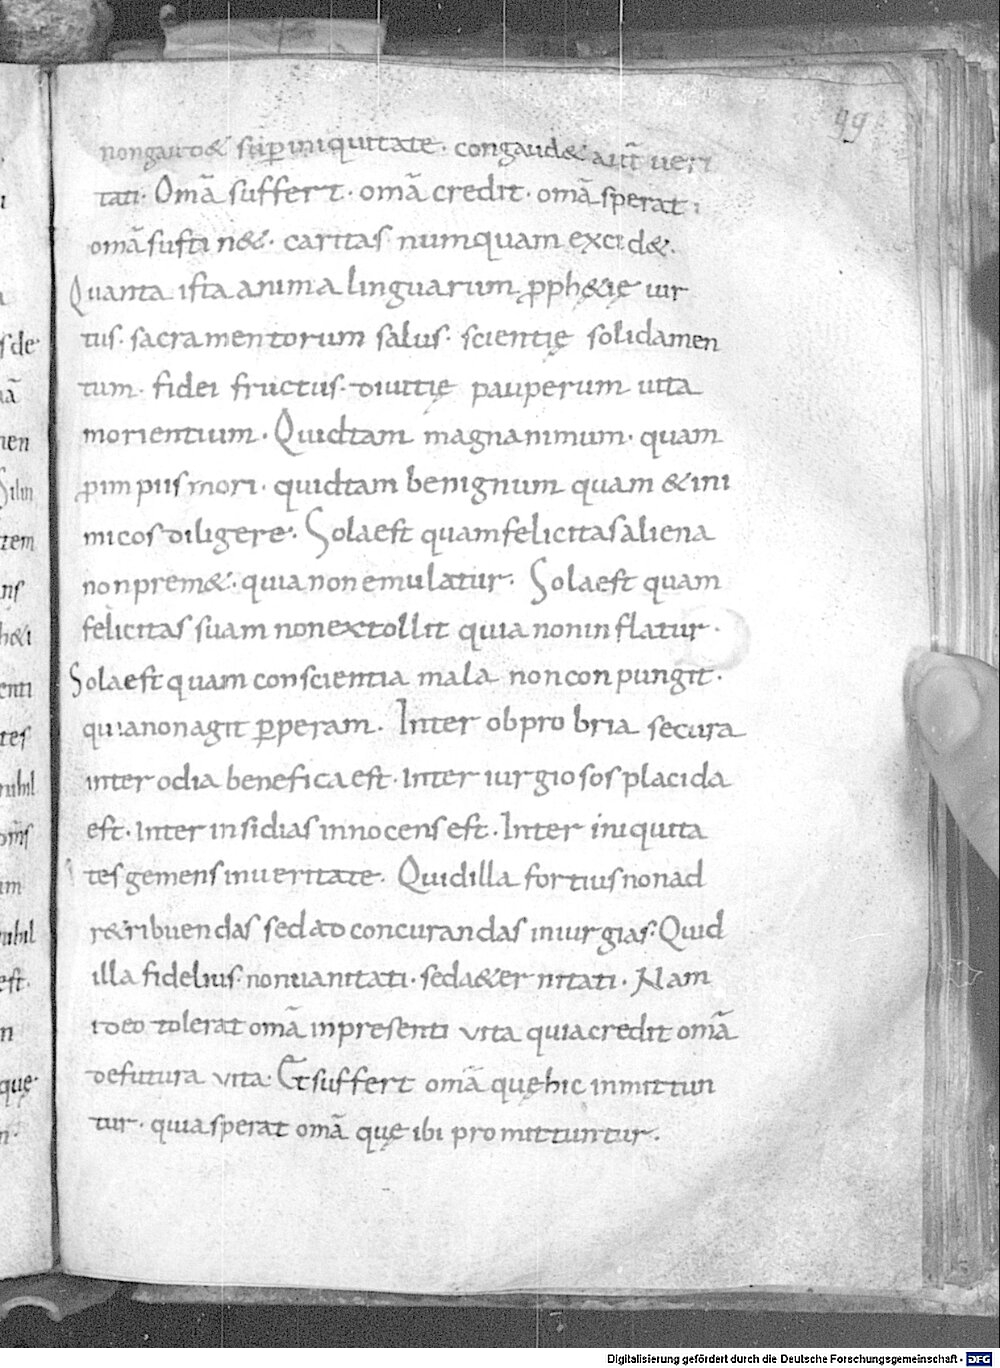 99
nongaud& sup iniquitate. congaud& aut ueri
tati. Omā suffert. omā credit. omā sperat;
omā sustin&. caritas numquam excid&.
Quanta ista anima linguarum pph&ię uir
tus. sacramentorum salus. scientię solidamen
tum. fidei fructus. diuitię pauperum uita
morientium. Quid tam magnanimum. quam
p impiis mori. quid tam benignum quam & ini
micos diligere. Sola est quam felicitas aliena
non prem&. quia non emulatur. Sola est quam
felicitas suam non extollit quia non inflatur.
Sola est quam conscientia mala non con pungit.
quia non agit pperam. Inter obprobria secura
inter odia benefica est. Inter iurgiosos placida
est. Inter insidias innocens est. Inter iniquita
tes gemens in ueritate. Quid illa fortius non ad
r&ribuendas sed ad concurandas iniurgias. Quid
illa fidelius. non uanitati. sed a&ernitati. Nam
ideo tolerat omā in presenti vita quia credit omā
de futura vita. Et suffert omā quę hic inmittun
tur. quia sperat omā quę ibi promittuntur.
Digitalisierung gefördert durch die Deutsche Forschungsgemeinschaft - DFG